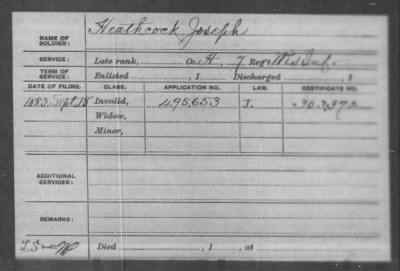 NAME OF SOLDIER: Heathcock Joseph
SERVICE: Late rank, Co. H, 7 Reg't Wis Inf.
TERM OF SERVICE: Enlisted , 1 Discharged , 1
DATE OF FILING. CLASS. APPLICATION NO. LAW. CERTIFICATE NO.
1883 Sept 18 Invalid, 495,653 J. 303,372
Widow,
Minor,
ADDITIONAL SERVICES:
REMARKS:
Died , 1 , at